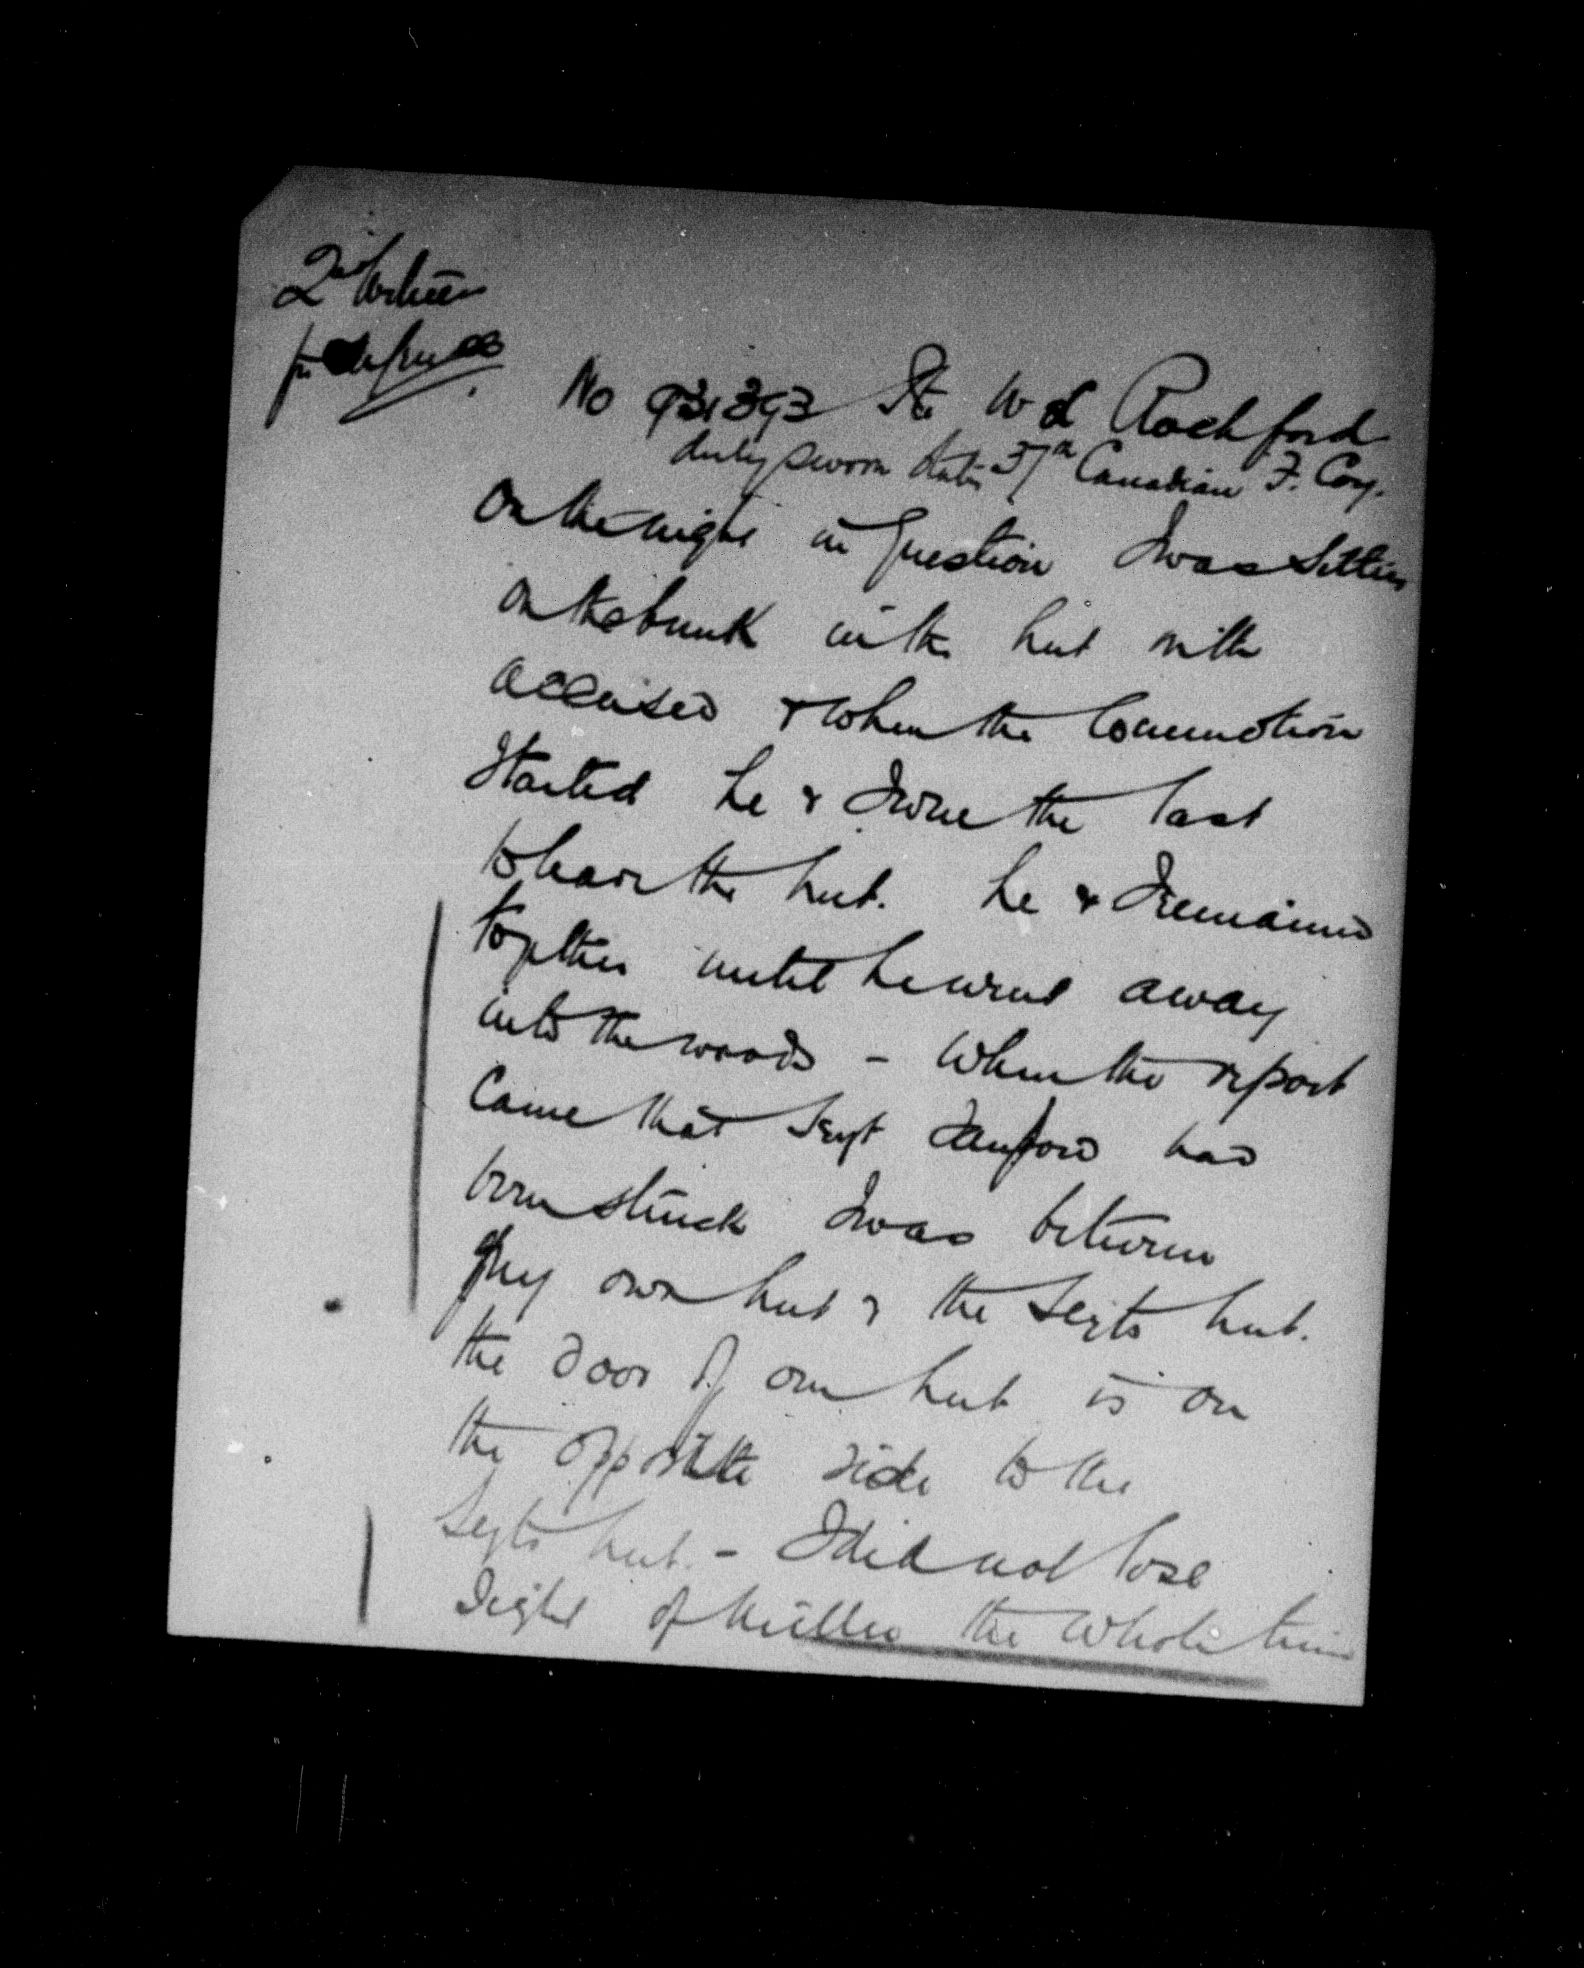 2nd Witness
for defence
No 931393 Pte W L Rochford
duly sworn states 37th Canadian F. Coy.
On the night in question I was sitting
on the bunk in the hut with
accused & when the commotion
started he & I were the last
to leave the hut. he & I remained
together until he went away
into the woods - When the report
came that Sergt Sanford had
been struck I was between
my own hut & the Sergts hut.
the door of our hut is on
the opposite side to the
Sergts hut. - I did not lose
sight of Miller the whole time